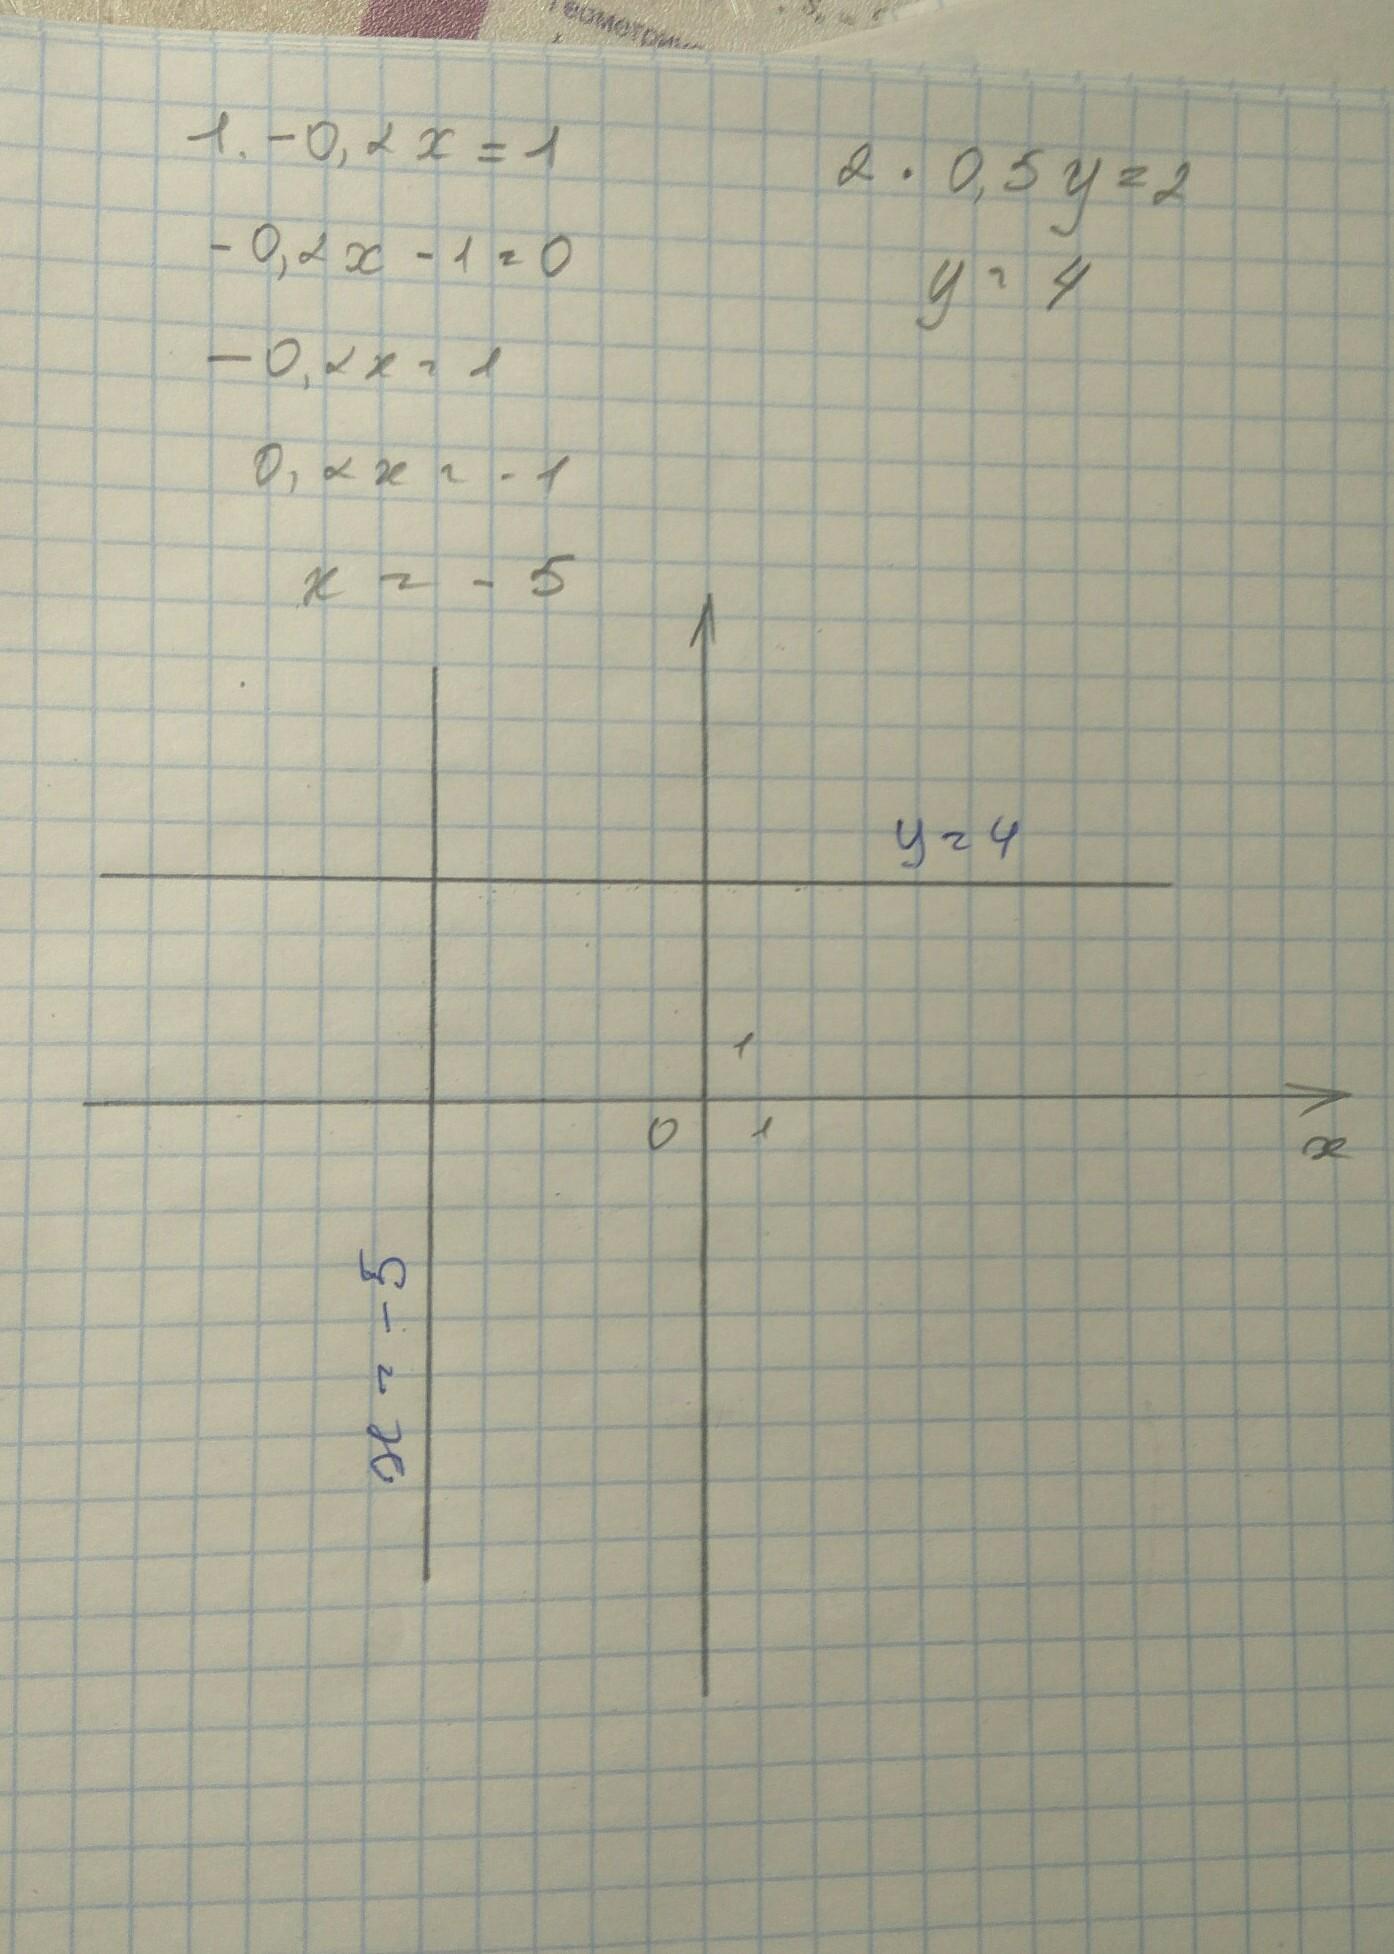 геометрич
1. -0,2x = 1
-0,2x - 1 = 0
-0,2x = 1
0,2x = -1
x = -5
2. 0,5y = 2
y = 4
y = 4
1
0 1
x
x = -5